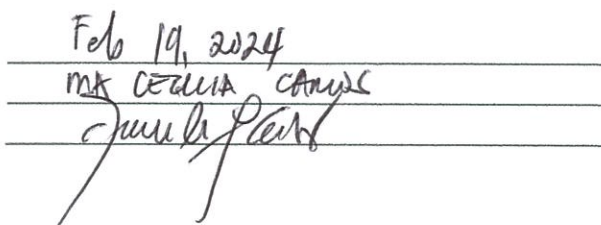 Feb 19, 2024
MA CECILIA CARLOS